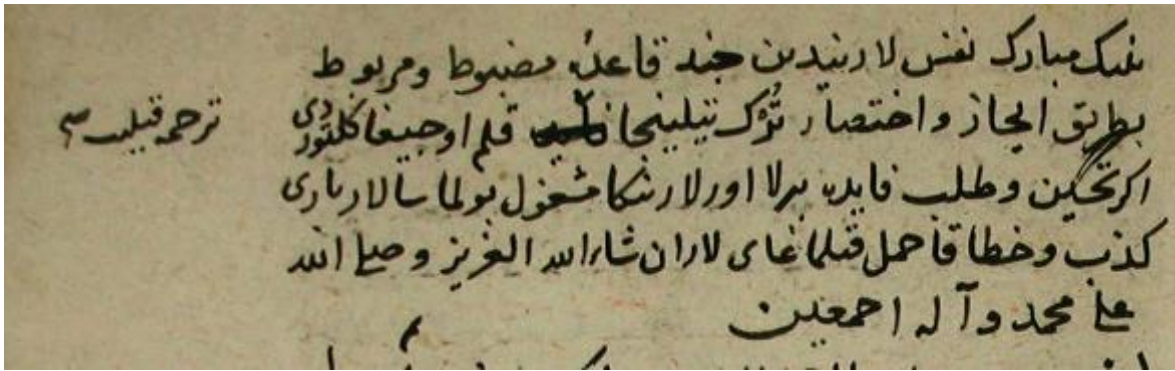 نینک مبارک نفس لاریندین جند قاعده مضبوط ومربوط
بطریق ایجاز و اختصار تؤرک تیلینجا قلم اوجیغا کلتوردی
ترجمه قیلیب
اکر تحسین و طلب فایده برلا اورلارنکا مشغول بولماسالار باری
کذب و خطا قا حمل قیلماغای لار ان شاء الله العزیز و صلی الله
علی محمد و آله اجمعین